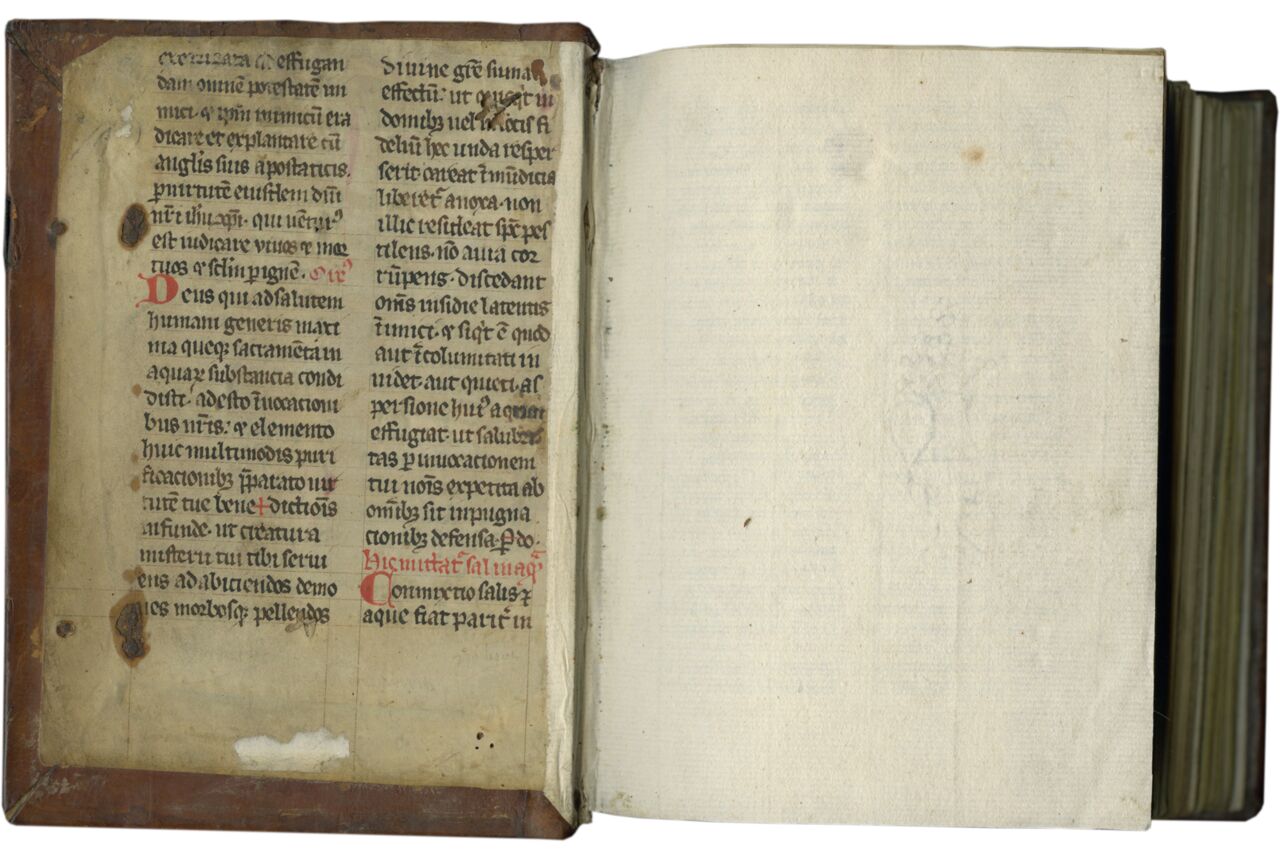 exorcizata ad effugan
dam omnē potestatē ini
mici· ⁊ ip̄m inimicū era
dicare et explantare cū
anglis suis apostaticis.
ꝑ uirtutē eiusdem dn̄i
nr̄i ihu xp̄i· qui uētur⁹
est iudicare viuos ⁊ mor
tuos ⁊ sclm̄ ꝑ ignē·
Deus qui ad salutem
humani generis maxi
ma queqꝫ sacramēta in
aquaꝝ substancia condi
disti· adesto īuocacioni
bus nr̄is· ⁊ elemento
huic multimodis puri
ficacionibꝫ p̄parato uir
tutē tue bene+dictiōis
infunde· ut creatura
misterii tui tibi serui
ens ad abiciendos demo
nes morbosqꝫ pellendos
diuine gr̄e sumat
effectū· ut in
domibꝫ uel in locis fi
deliū hec unda resper
serit careat īmūdicia
liberet᷑ a noxa· non
illic resideat sp̄c pes
tilens· nō aura cor
rūpens· discedant
oms̄ insidie latentis
īimici· ⁊ siqͥt ē quod
aut īcolumitati in
uidet aut quieti· as
persione huiꝰ aque
effugiat· ut salubri
tas ꝑ inuocacionem
tui nois̄ expetita ab
omībꝫ sit inpugna
cionibꝫ defensa· P do·
Hic mittat᷑ sal in aqͣ
Commixtio salis ⁊
aque fiat parit᷑ in